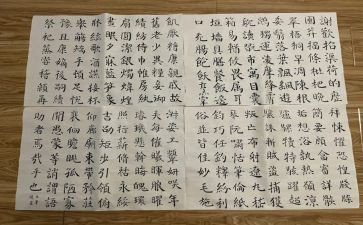 謝歡招渠荷的歷
園莽抽條枇杷晚
翠梧桐早凋陳根
委翳落葉飄颻遊
鯤獨運凌摩絳霄
耽讀翫市寓目囊
箱易輶攸畏屬耳
垣牆具膳餐飯適
口充腸飽飫烹宰
飢厭糟糠親戚故
舊老少異糧妾御
績紡侍巾帷房紈
扇圓潔銀燭煒煌
晝眠夕寐藍筍象
牀絃歌酒讌接杯
舉觴矯手頓足悅
豫且康嫡後嗣續
祭祀蒸嘗稽顙再
拜悚懼恐惶牋牒
簡要顧答審詳骸
垢想浴執熱願涼
驢騾犢特駭躍超
驤誅斬賊盜捕獲
叛亡布射遼丸嵇
琴阮嘯恬筆倫紙
鈞巧任釣釋紛利
俗並皆佳妙毛施
淑姿工顰妍咲年
矢每催曦暉朗曜
璇璣懸斡晦魄環
照指薪脩祜永綏
吉劭矩步引領俯
仰廊廟束帶矜莊
徘徊瞻眺孤陋寡
聞愚蒙等誚謂語
助者焉哉乎也